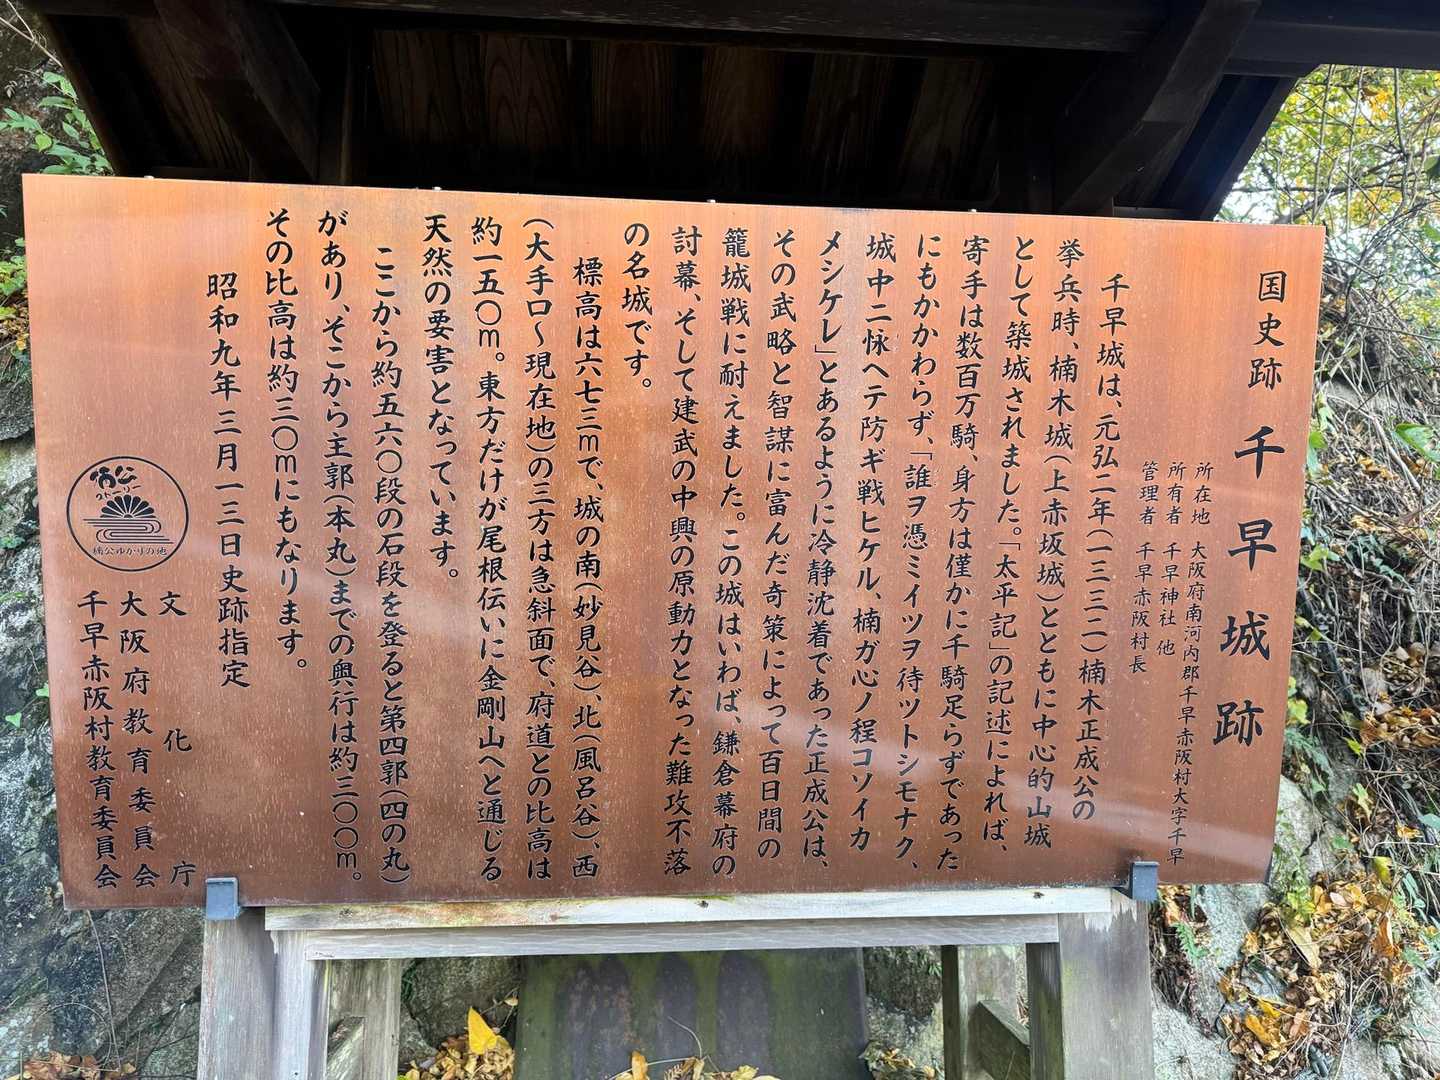 国史跡 千早城跡
所在地 大阪府南河内郡千早赤阪村大字千早
所有者 千早神社 他
管理者 千早赤阪村長
千早城は、元弘二年(一三三二)楠木正成公の
挙兵時、楠木城(上赤坂城)とともに中心的山城
として築城されました。「太平記」の記述によれば、
寄手は数百万騎、身方は僅かに千騎足らずであった
にもかかわらず、「誰ヲ憑ミイツヲ待ツトシモナク、
城中ニ怺ヘテ防ギ戦ヒケル、楠ガ心ノ程コソイカ
メシケレ」とあるように冷静沈着であった正成公は、
その武略と智謀に富んだ奇策によって百日間の
籠城戦に耐えました。この城はいわば、鎌倉幕府の
討幕、そして建武の中興の原動力となった難攻不落
の名城です。
標高は六七三mで、城の南(妙見谷)、北(風呂谷)、西
(大手口～現在地)の三方は急斜面で、府道との比高は
約一五〇m。東方だけが尾根伝いに金剛山へと通じる
天然の要害となっています。
ここから約五六〇段の石段を登ると第四郭(四の丸)
があり、そこから主郭(本丸)までの奥行は約三〇〇m。
その比高は約三〇mにもなります。
昭和九年三月一三日史跡指定
文化庁
大阪府教育委員会
千早赤阪村教育委員会
楠公
ストーリー
楠公ゆかりの地